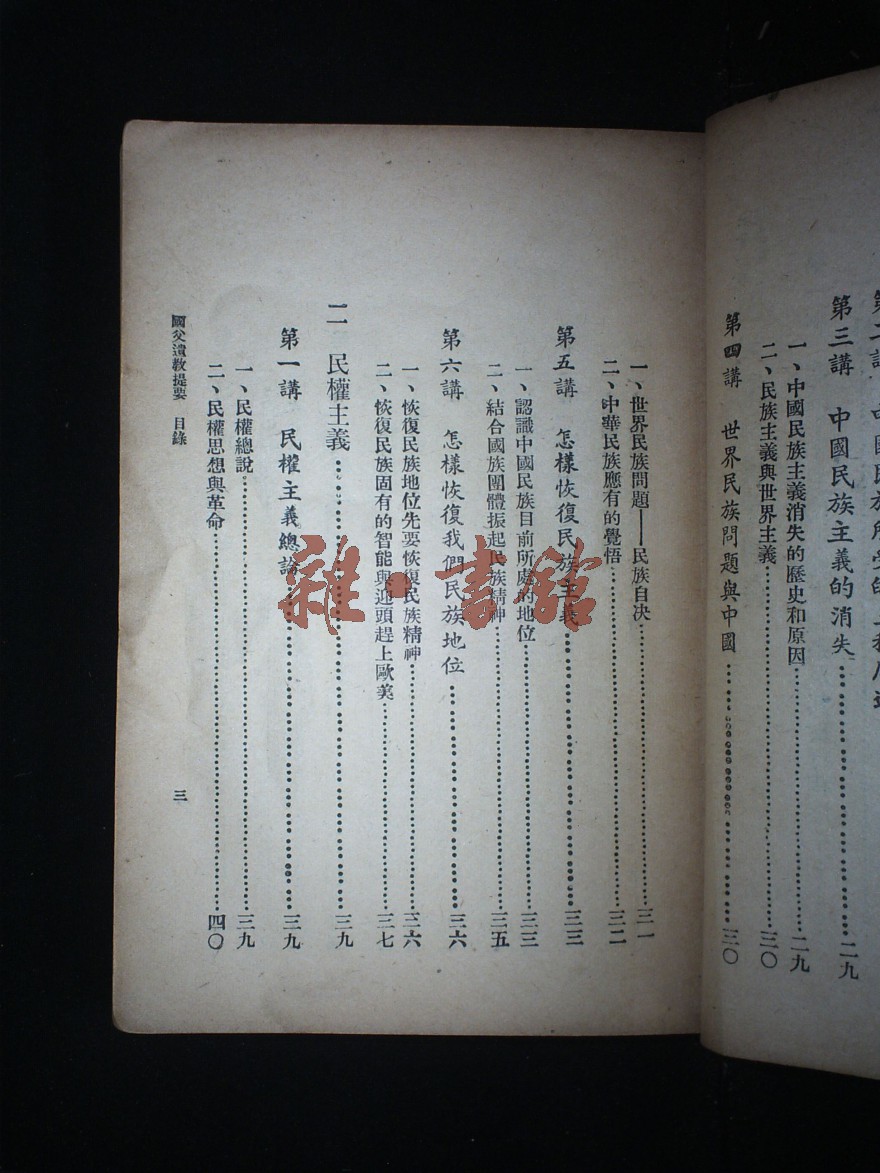 第三講　中國民族主義的消失……二九
一、中國民族主義消失的歷史和原因……二九
二、民族主義與世界主義……三〇
第四講　世界民族問題與中國……三〇
一、世界民族問題——民族自决……三一
二、中華民族應有的覺悟……三二
第五講　怎樣恢復民族主義……三三
一、認識中國民族目前所處的地位……三三
二、結合國族團體振起民族精神……三五
第六講　怎樣恢復我們民族地位……三六
一、恢復民族地位先要恢復民族精神……三六
二、恢復民族固有的智能與迎頭趕上歐美……三七
二　民權主義……三九
第一講　民權主義總論……三九
一、民權總說……三九
二、民權思想與革命……四〇
國父遺教提要　目錄
三
雜·書館